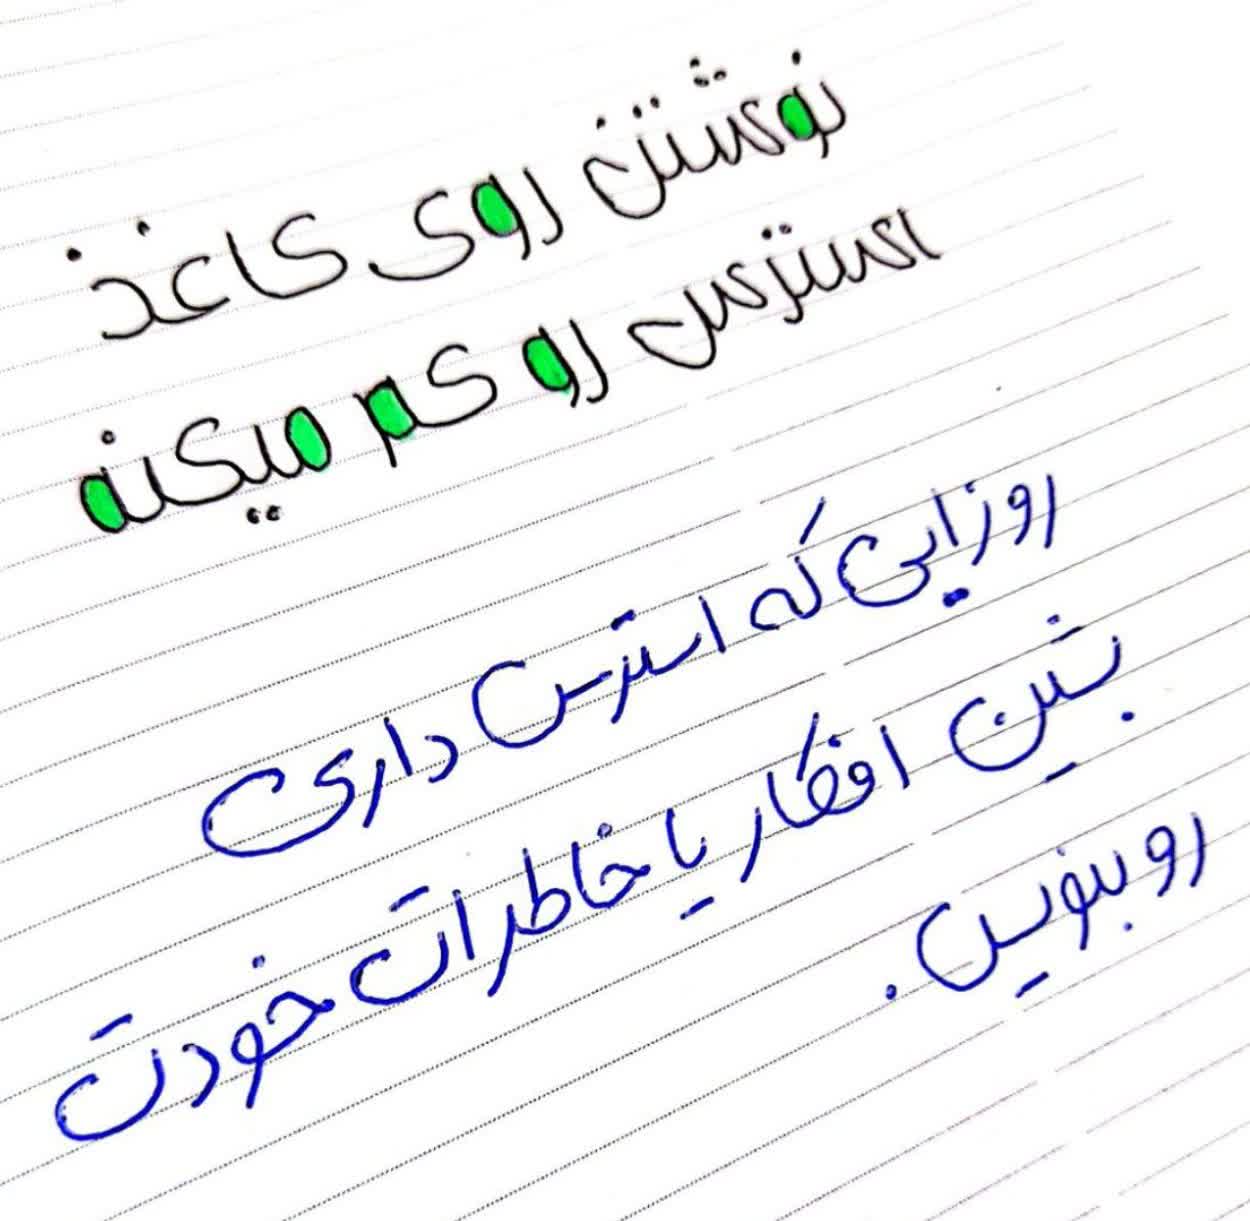 نوشتن روی کاغذ
استرس رو کم میکنه
روزایی که استرس داری
بشین افکار یا خاطرات خودت
رو بنویس.